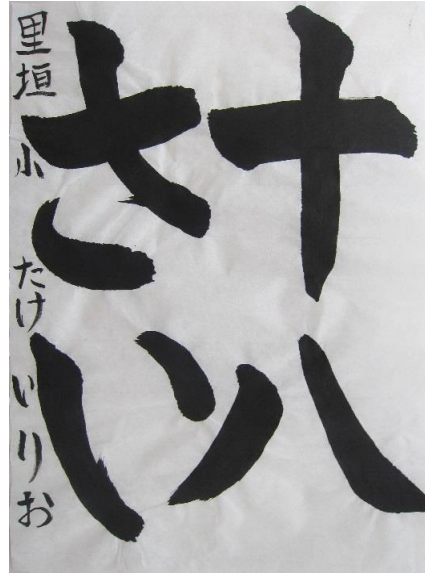 十八
さい
里垣小 たけいりお